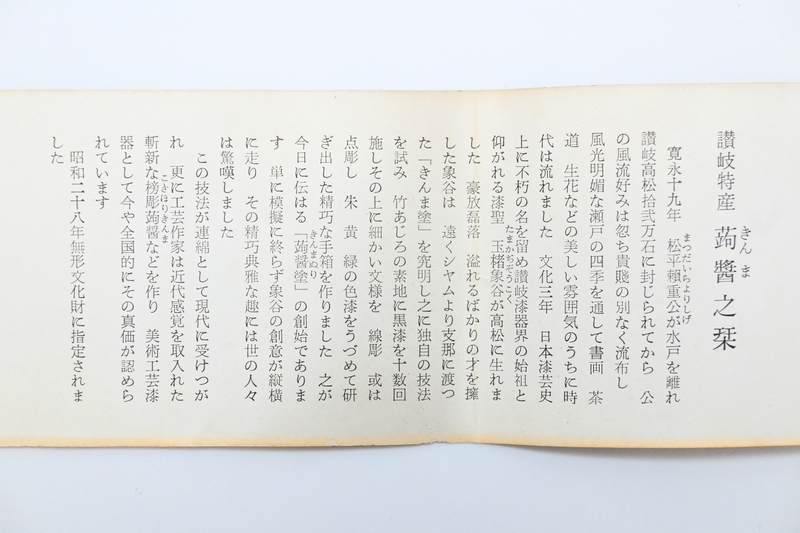 讃岐特産 蒟醬之栞
きんま
寛永十九年 松平頼重公が水戸を離れ
まつだいらよりしげ
讃岐高松拾弐万石に封じられてから 公
の風流好みは忽ち貴賤の別なく流布し
風光明媚な瀬戸の四季を通して書画 茶
道 生花などの美しい雰囲気のうちに時
代は流れました 文化三年 日本漆芸史
上に不朽の名を留め讃岐漆器界の始祖と
仰がれる漆聖 玉楮象谷が高松に生れま
たまかぢぞうこく
した 豪放磊落 溢れるばかりの才を擁
した象谷は 遠くシヤムより支那に渡つ
た「きんま塗」を究明し之に独自の技法
を試み 竹あじろの素地に黒漆を十数回
施しその上に細かい文様を 線彫 或は
点彫し 朱 黄 緑の色漆をうづめて研
ぎ出した精巧な手箱を作りました 之が
今日に伝はる「蒟醬塗」の創始でありま
きんまぬり
す 単に模擬に終らず象谷の創意が縦横
に走り その精巧典雅な趣には世の人々
は驚嘆しました
この技法が連綿として現代に受けつが
れ 更に工芸作家は近代感覚を取入れた
斬新な榜彫蒟醬などを作り 美術工芸漆
こきほりきんま
器として今や全国的にその真価が認めら
れています
昭和二十八年無形文化財に指定されま
した